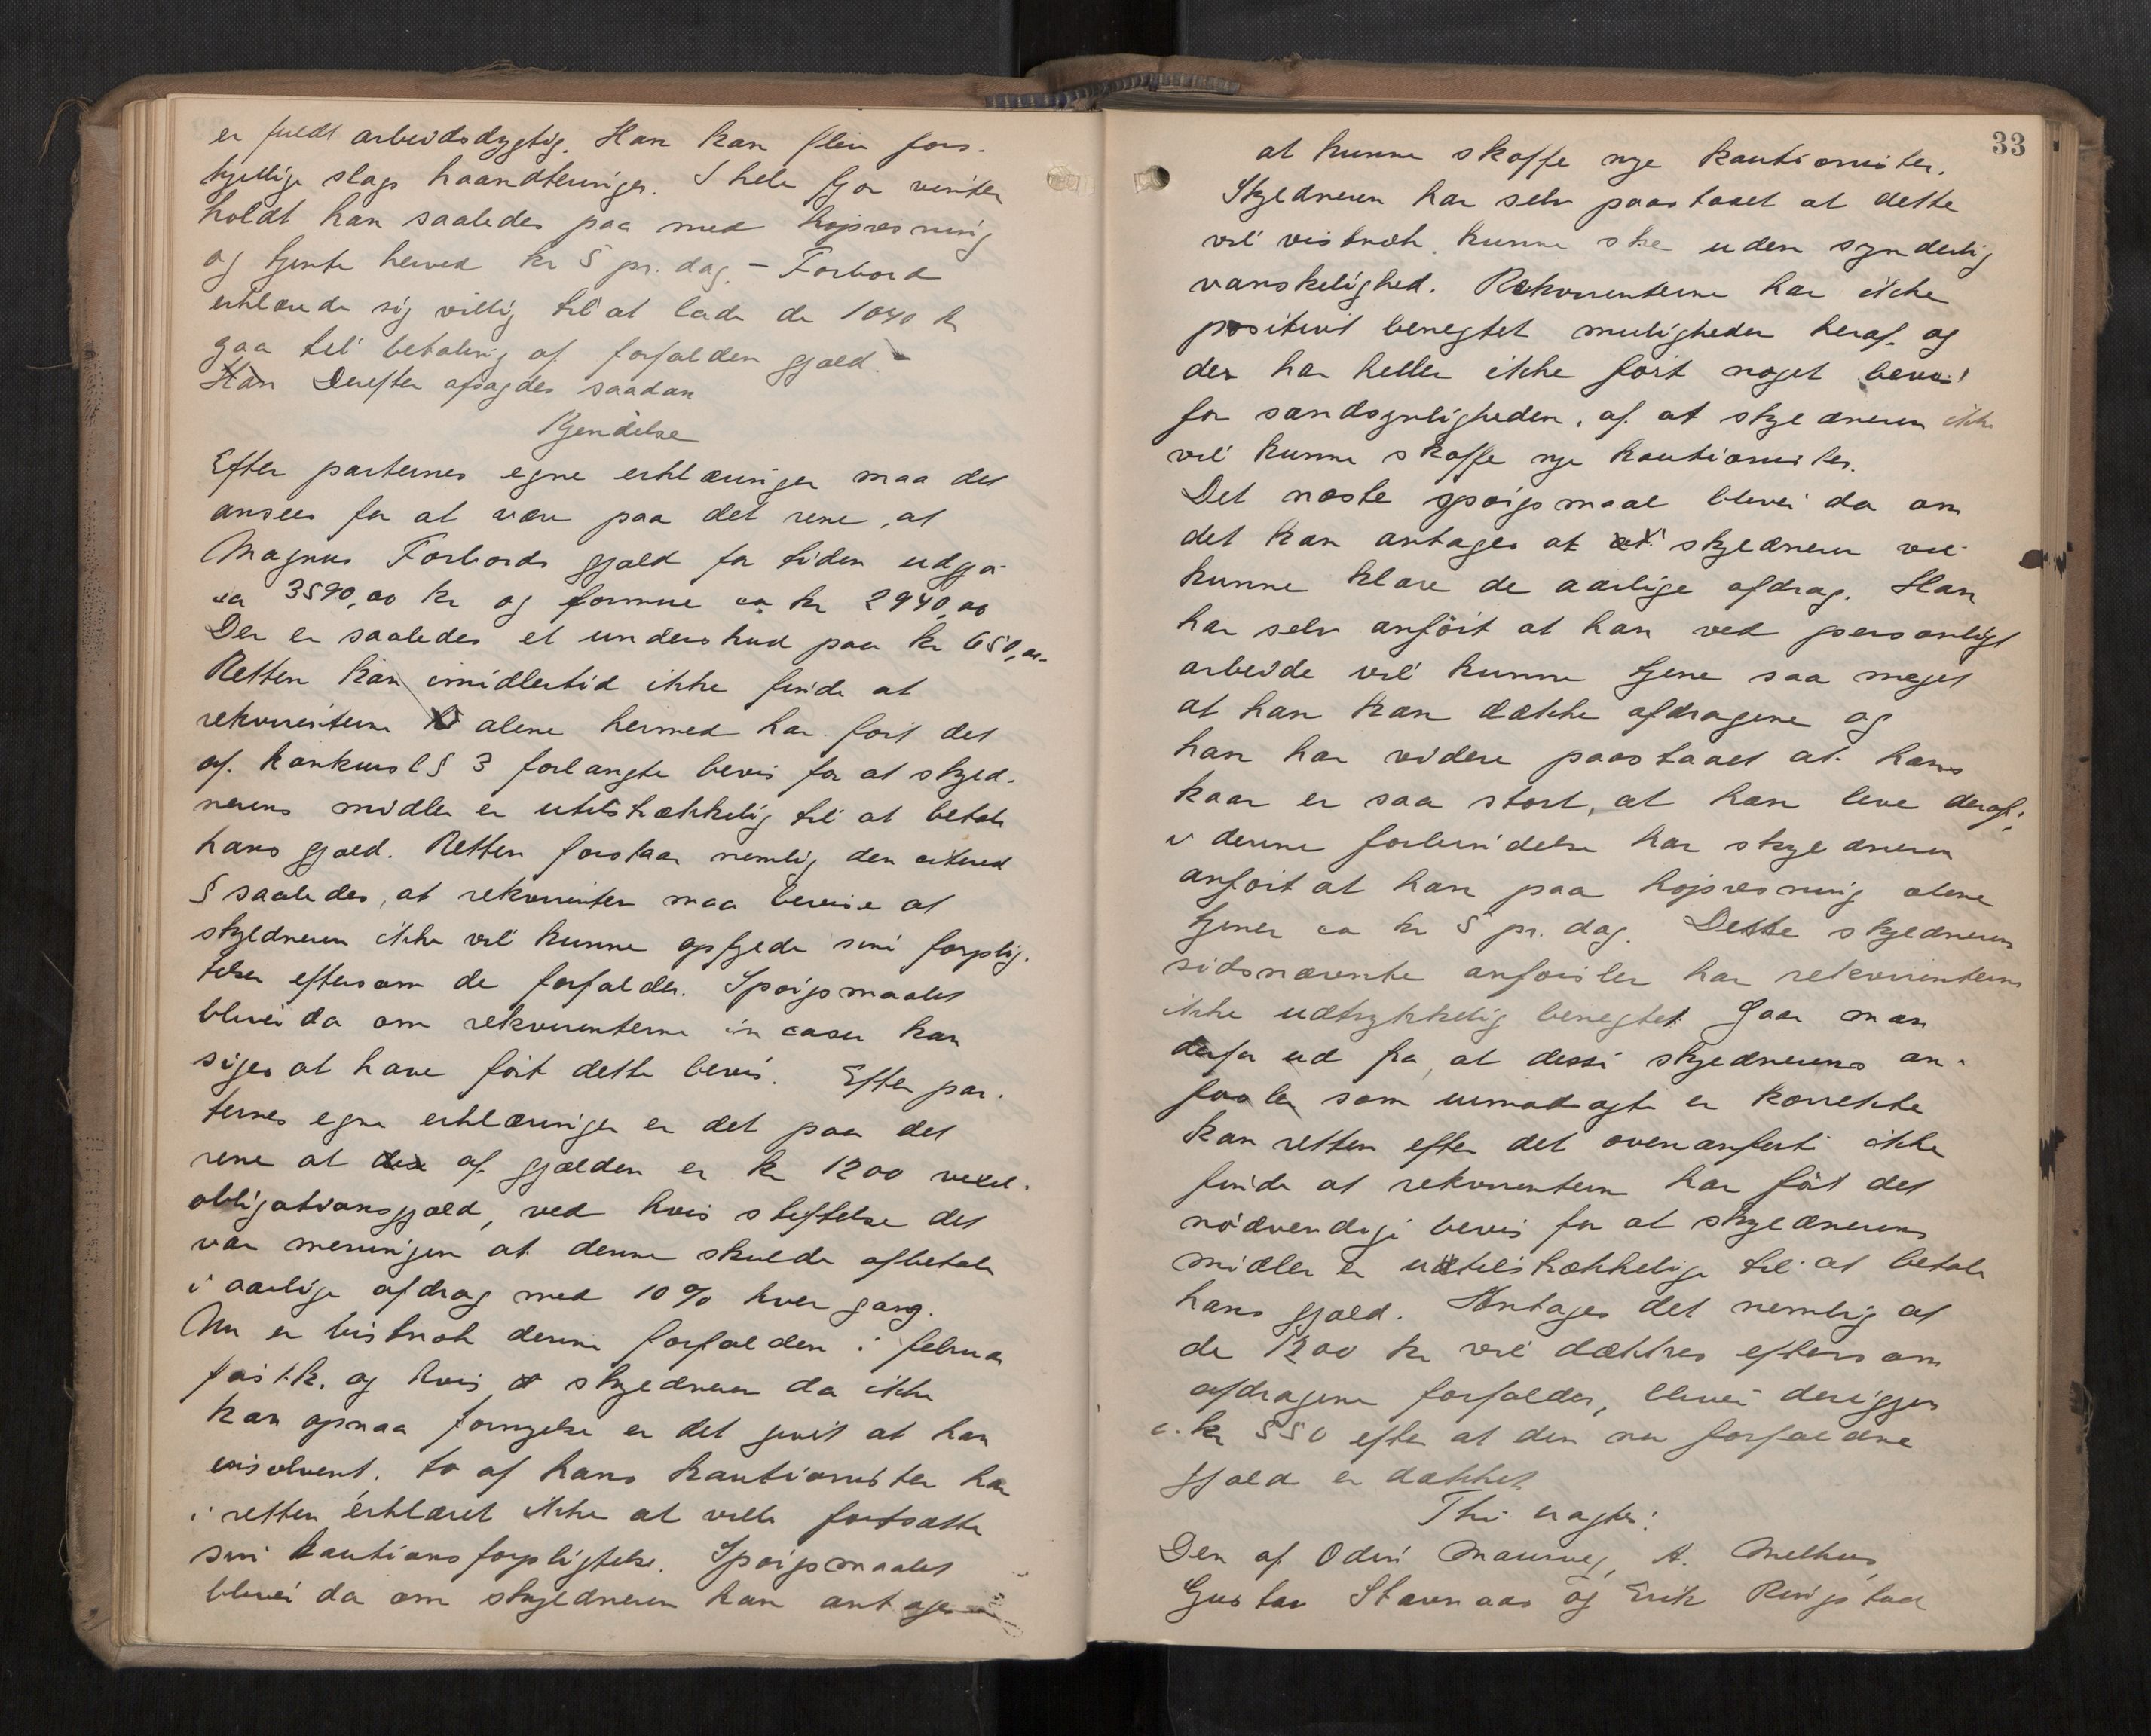 er fuldt arbeidsdygtig. Han kan flere for-
skjellige slags haandteringer. I hele fjor vinter
holdt han saaledes paa med høipresning
og tjente herved kr 5 pr. dag. – Forbord
erklærede sig villig til at lade de 1040 kr
gaa til betaling af forfalden gjæld. –
Han Derefter afsagdes saadan
Kjendelse
Efter parternes egne erklæringer maa det
ansees for at være paa det rene, at
Magnus Forbords gjæld for tiden udgjør
ca 3590,00 kr og formue ca kr 2940,00
Der er saaledes et underskud paa kr 650,00.
Retten kan imidlertid ikke finde at
rekvirenterne alene hermed har ført det
af konkursl § 3 forlangte bevis for at skyld-
nerens midler er utilstrækkelig til at betale
hans gjæld. Retten forstaar nemlig den citered
§ saaledes, at rekvirenten maa bevise at
skyldneren ikke vil kunne opfylde sine forplig-
telser eftersom de forfalder. Spørgsmaalet
bliver da om rekvirenterne in casu kan
siges at have ført dette bevis. Efter par-
ternes egne erklæringer er det paa det
rene at af gjælden er kr 1200 vexel-
obligationsgjæld, ved hvis stiftelse det
var meningen at denne skulde afbetales
i aarlige afdrag med 10 % hver gang.
Nu er vistnok denne forfalden i februar
førstk. og hvis skyldneren da ikke
kan opnaa fornyelse er det givet at han
insolvent. to af hans kautionister har
i retten erklæret ikke at ville fortsætte
sin kautionsforpligtelse. Spørgsmaalet
bliver da om skyldneren kan antages
33
at kunne skaffe nye kautionister.
Skyldneren har selv paastaaet at dette
vil vistnok kunne ske uden synderlig
vanskelighed. Rekvirenterne har ikke
positivt benegtet muligheden heraf og
der har heller ikke ført noget bevis
for sandsynligheden, af at skyldneren ikke
vil kunne skaffe nye kautionister.
Det næste spørgsmaal bliver da om
det kan antages at at skyldneren vil
kunne klare de aarlige afdrag. Han
har selv anført at han ved personligt
arbeide vil kunne tjene saa meget
at han kan dække afdragene og
han har videre paastaaet at hans
kaar er saa stort, at han leve deraf;
i denne forbindelse har skyldneren
anført at han paa høipresning alene
tjener ca kr 5 pr. dag. Dette skyldnerens
sidsnævnte anførsler har rekvirenterne
ikke udtrykkelig benegtet. Gaar man
derfor ud fra, at disse skyldnerens an-
førsler som uimodsagte er korrekte
kan retten efter det ovenanførte ikke
finde at rekvirenterne har ført det
nødvendige bevis for at skyldnerens
midler er utilstrækkelige til at betale
hans gjæld. Antages det nemlig at
de 1200 kr vil dækkes eftersom
afdragene forfalder, bliver derigjen
c. kr 550 efter at den nu forfaldne
gjæld er dækket
Thi eragtes:
Den af Odin Maurvej, A. Melhus,
Gustav Stavnaas og Erik Ringstad